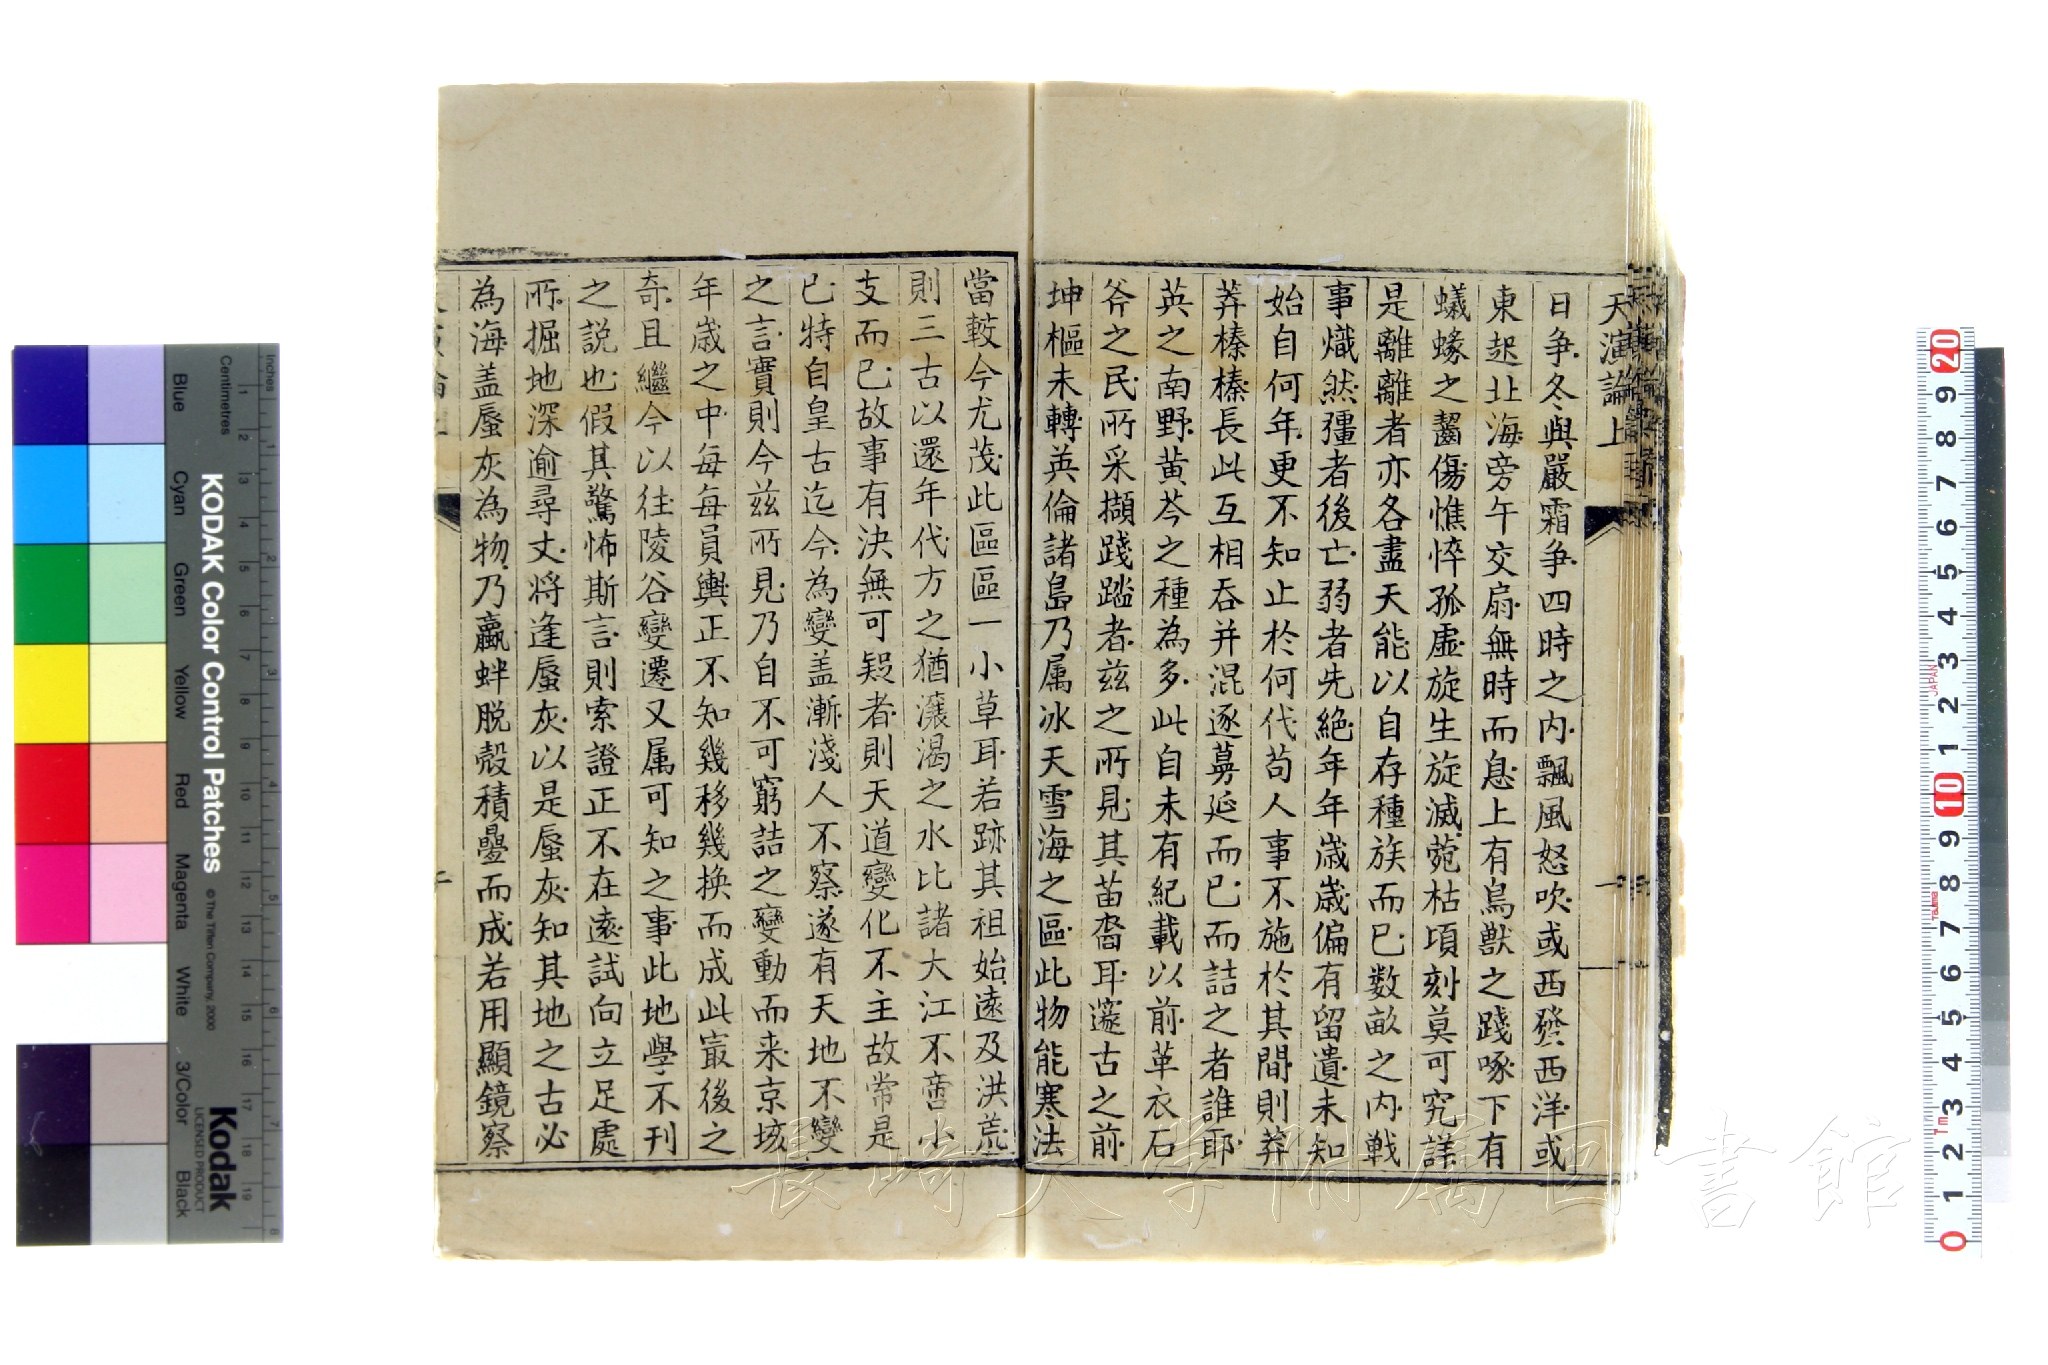 天演論上
日爭冬與嚴霜爭四時之內飄風怒吹或西發西洋或
東起北海旁午交扇無時而息上有鳥獸之踐啄下有
蟻蝝之齧傷憔悴孤虛旋生旋滅菀枯頃刻莫可究詳
是離離者亦各盡天能以自存種族而已數畝之內戰
事熾然彊者後亡弱者先絕年年歲歲偏有留遺未知
始自何年更不知止於何代苟人事不施於其間則莽
莽榛榛長此互相吞并混逐蔓延而已而詰之者誰耶
英之南野黃芩之種為多此自未有紀載以前革衣石
斧之民所采擷踐踏者茲之所見其苗裔耳邃古之前
坤樞未轉英倫諸島乃属冰天雪海之區此物能寒法
當較今尤茂此區區一小草耳若跡其祖始遠及洪荒
則三古以還年代方之猶瀼渴之水比諸大江不啻小
支而已故事有決無可疑者則天道變化不主故常是
已特自皇古迄今為變盖漸淺人不察遂有天地不變
之言實則今茲所見乃自不可窮詰之變動而来京垓
年歲之中每每員輿正不知幾移幾換而成此㝡後之
奇且繼今以往陵谷變遷又属可知之事此地學不刊
之説也假其驚怖斯言則索證正不在遠試向立足處
所掘地深逾尋丈將逢蜃灰以是蜃灰知其地之古必
為海盖蜃灰為物乃蠃蚌脱殼積疊而成若用顯鏡察
KODAK Color Control Patches
© The Tiffen Company, 2000
Kodak
LICENSED PRODUCT
Inches
Centimetres
Blue
Cyan
Green
Yellow
Red
Magenta
White
3/Color
Black
長崎大学附属図書館
JAPAN
Tajima